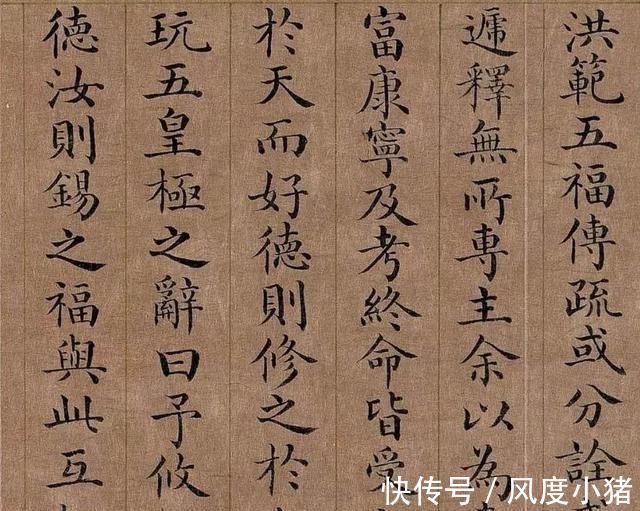 洪範五福傳疏或分詮
遞釋無所專主余以為
富康寧及考終命皆受
於天而好德則修之於
玩五皇極之辭曰予攸
德汝則錫之福與此互
快传号／风度小猪